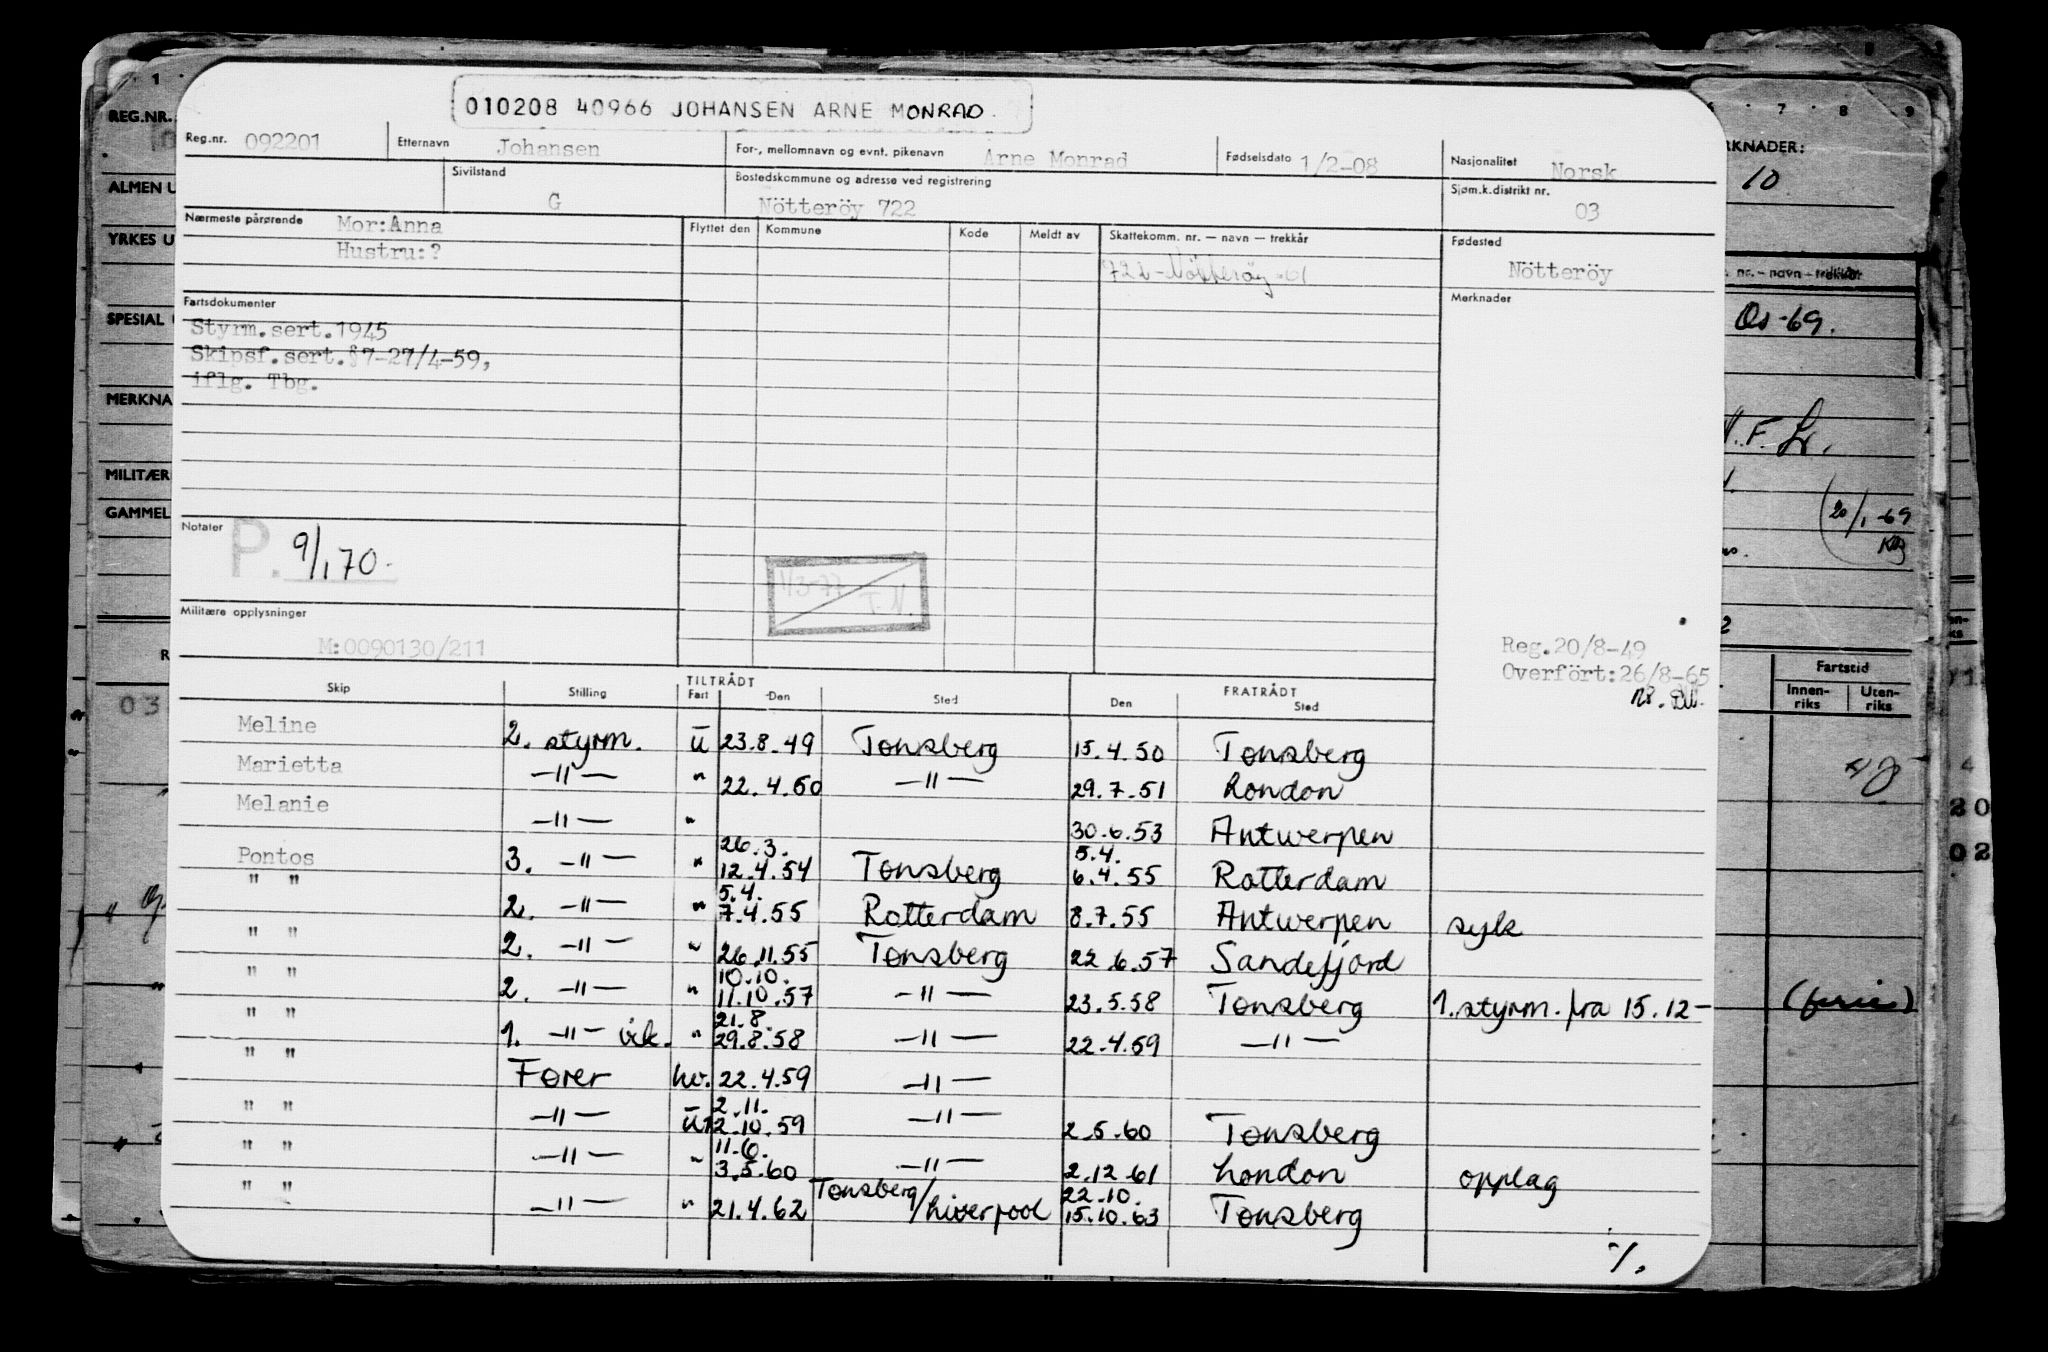 010208 40966 JOHANSEN ARNE MONRAD
Reg.nr. 092201 Etternavn Johansen For-, mellomnavn og evnt. pikenavn Arne Monrad Fødselsdato 1/2-08 Nasjonalitet Norsk
Sivilstand G Bostedskommune og adresse ved registrering Nötteröy 722 Sjøm.k.distrikt nr. 03
Nærmeste pårørende Mor:Anna
Hustru:?
Flyttet den Kommune Kode Meldt av Skattekomm. nr. — navn — trekkår Fødested
722-Nötteröy-61 Nötteröy
Fartsdokumenter Merknader
Styrm.sert.1945
Skipsf.sert.§7-27/4-59,
iflg. Tbg.
Notater
P. 9/1 70.
1/3-77 T.N.
Militære opplysninger
M:0090130/211
Reg.20/8-49
Overfört:26/8-65
Skip Stilling TILTRÅDT Fart Den Sted FRATRÅDT Den Sted
Meline 2. styrm. U 23.8.49 Tønsberg 15.4.50 Tønsberg
Marietta —"— " 22.4.50 —"— 29.7.51 London
Melanie —"— " 30.6.53 Antwerpen
Pontos 3. —"— " 26.3. 12.4.54 Tønsberg 5.4. 6.4.55 Rotterdam
" " 2. —"— " 5.4. 7.4.55 Rotterdam 8.7.55 Antwerpen syk
" " 2. —"— " 26.11.55 Tønsberg 22.6.57 Sandefjord
" " 2. —"— " 10.10. 11.10.57 —"— 23.5.58 Tønsberg 1.styrm. fra 15.12-
" " 1. —"— vik. " 21.8. 29.8.58 —"— 22.4.59 —"—
" " Fører hv. 22.4.59 —"—
" " —"— U 2.11. 12.10.59 —"— 2.5.60 Tønsberg
" " —"— " 11.6. 3.5.60 —"— 2.12.61 London opplag
" " —"— " 21.4.62 Tønsberg/Liverpool 22.10. 15.10.63 Tønsberg
·/.
REG.NR.
ALMEN U
YRKES U
SPESIAL
MERKNA
MILITÆR
GAMMEL
R
03
1
7 8 9
RKNADER:
10
nr. — navn — trekkår
Os-69.
N.F. Lr.
20/1-69
Fartstid
Innen-riks Uten-riks
4
20
02
(ferie)